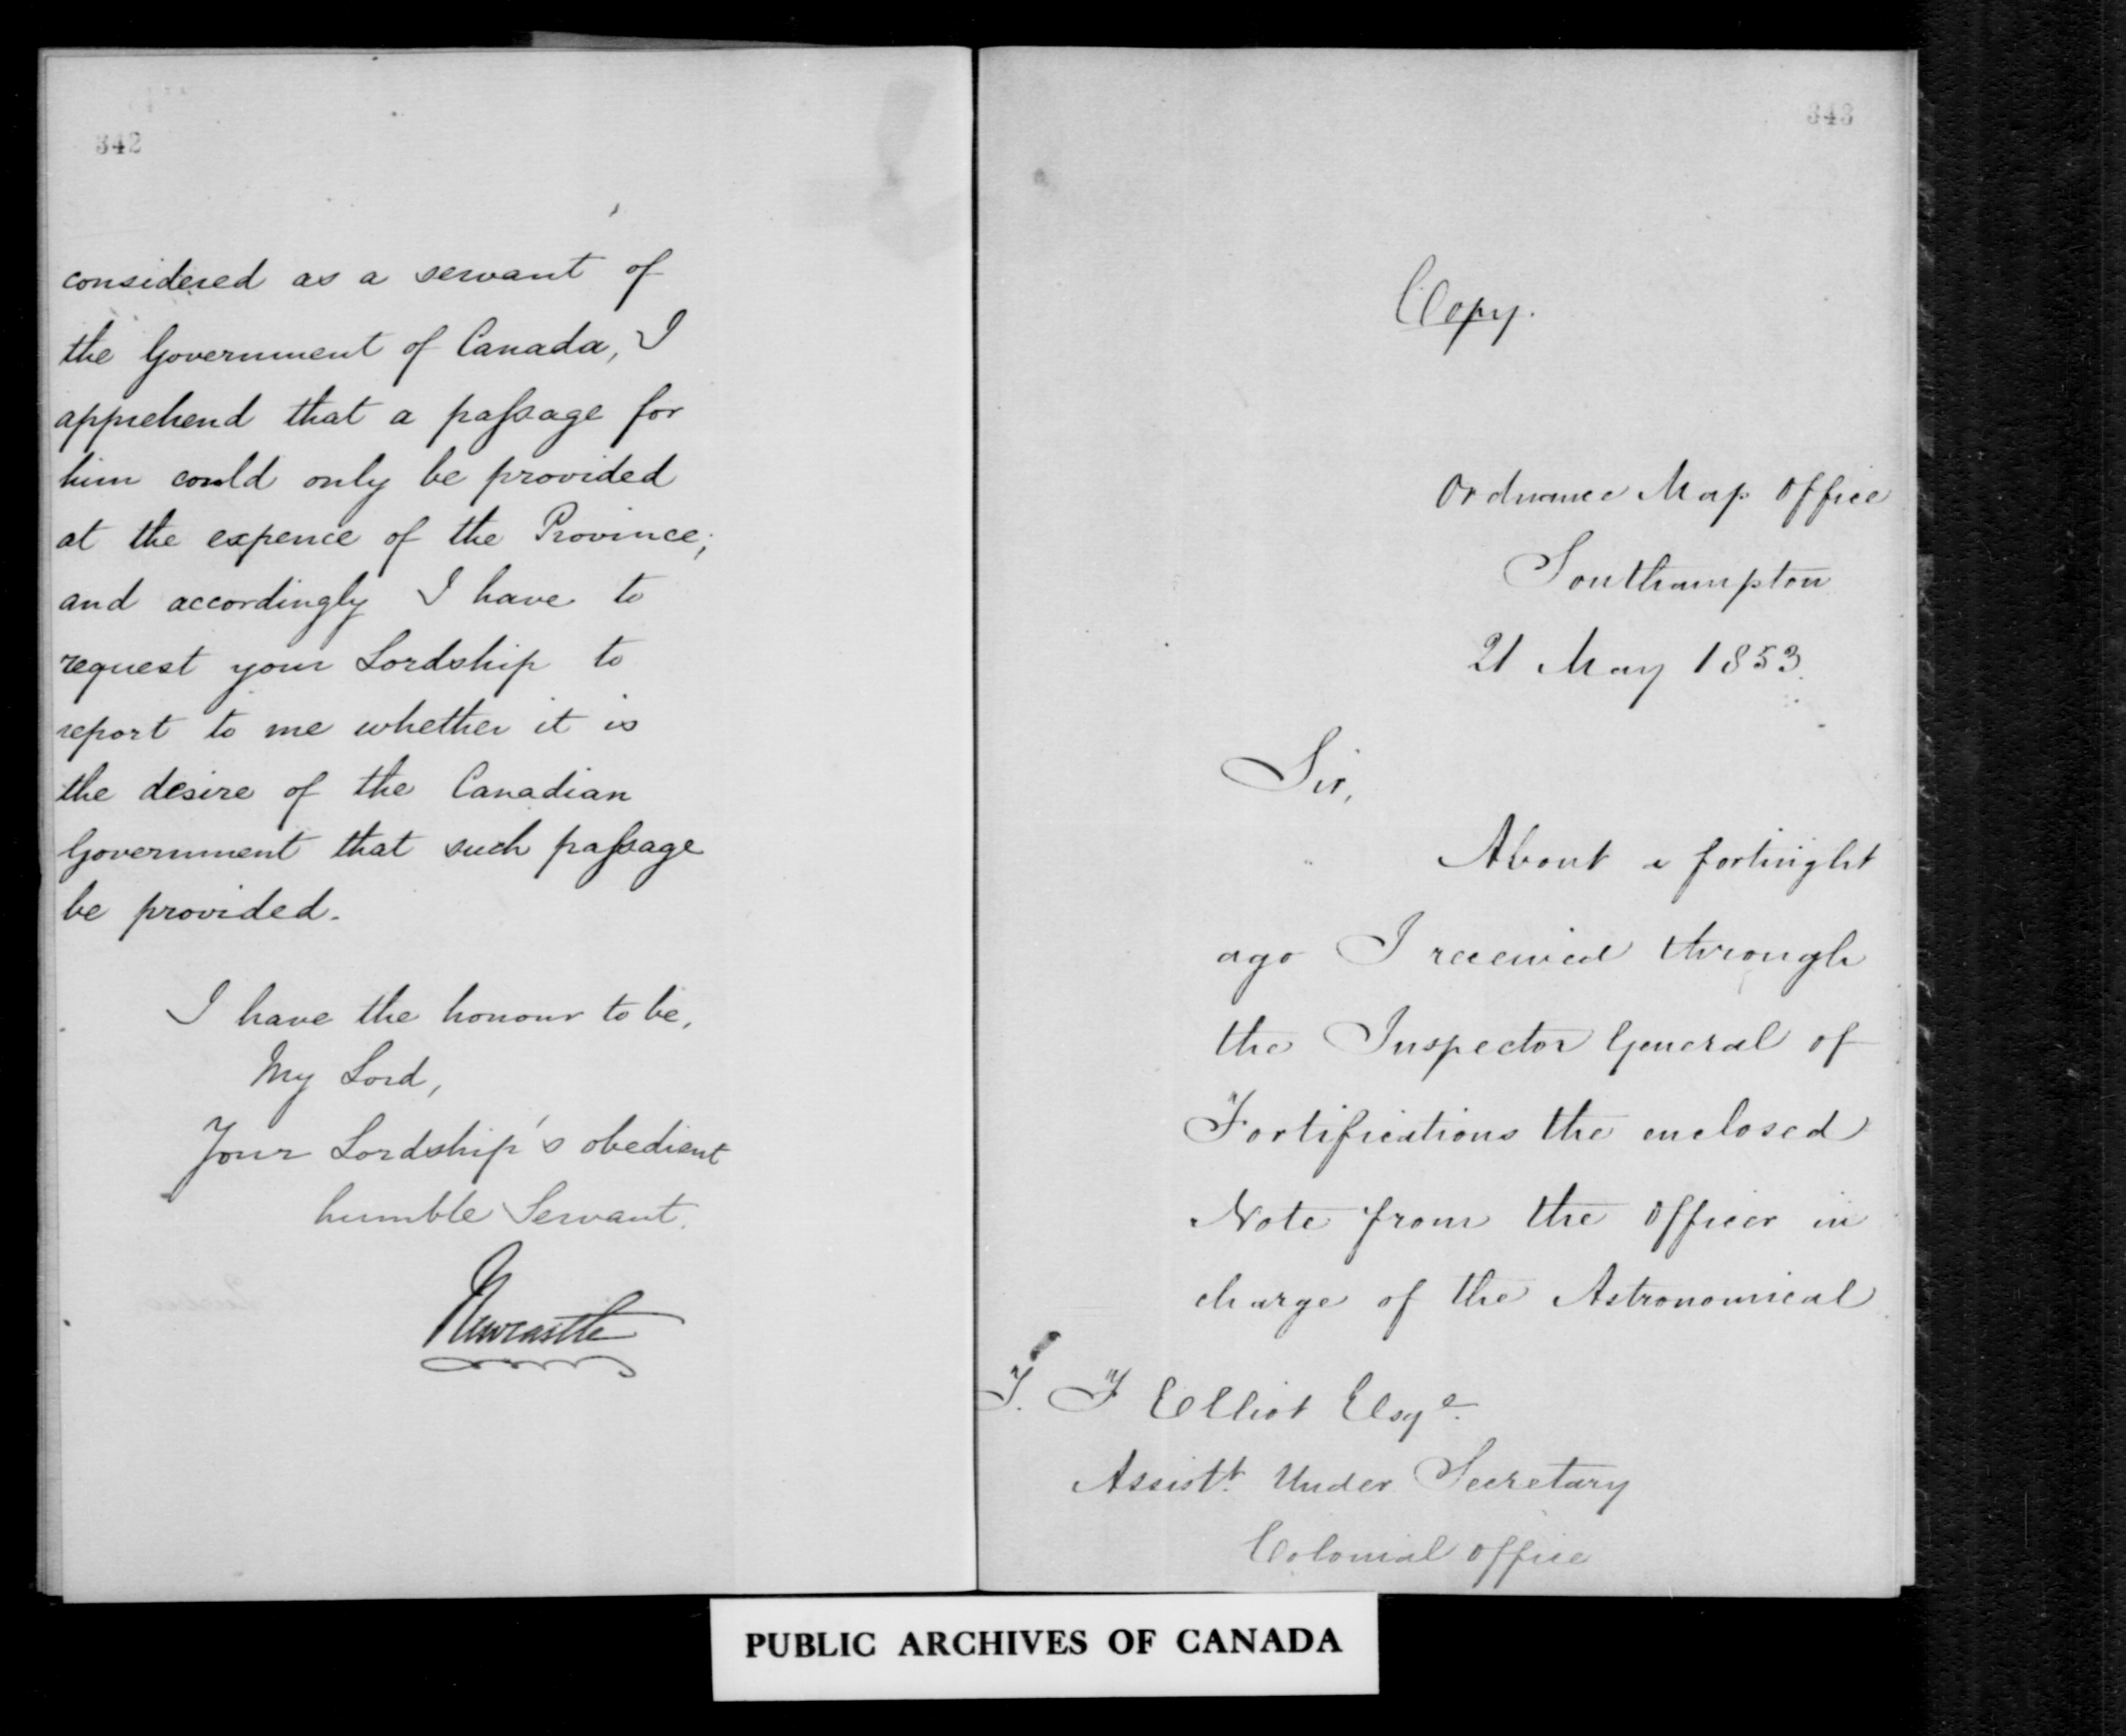 342
considered as a servant of
the Government of Canada, I
apprehend that a passage for
him could only be provided
at the expence of the Province;
and accordingly I have to
request your Lordship to
report to me whether it is
the desire of the Canadian
Government that such passage
be provided.
I have the honour to be,
My Lord,
Your Lordship's obedient
humble Servant.
Newcastle
343
Copy.
Ordnance Map Office
Southampton
21 May 1853.
Sir,
About a fortnight
ago I received through
the Inspector General of
Fortifications the enclosed
Note from the Officer in
charge of the Astronomical
T. F Elliot Esqe.
Assistt. Under Secretary
Colonial Office
PUBLIC ARCHIVES OF CANADA